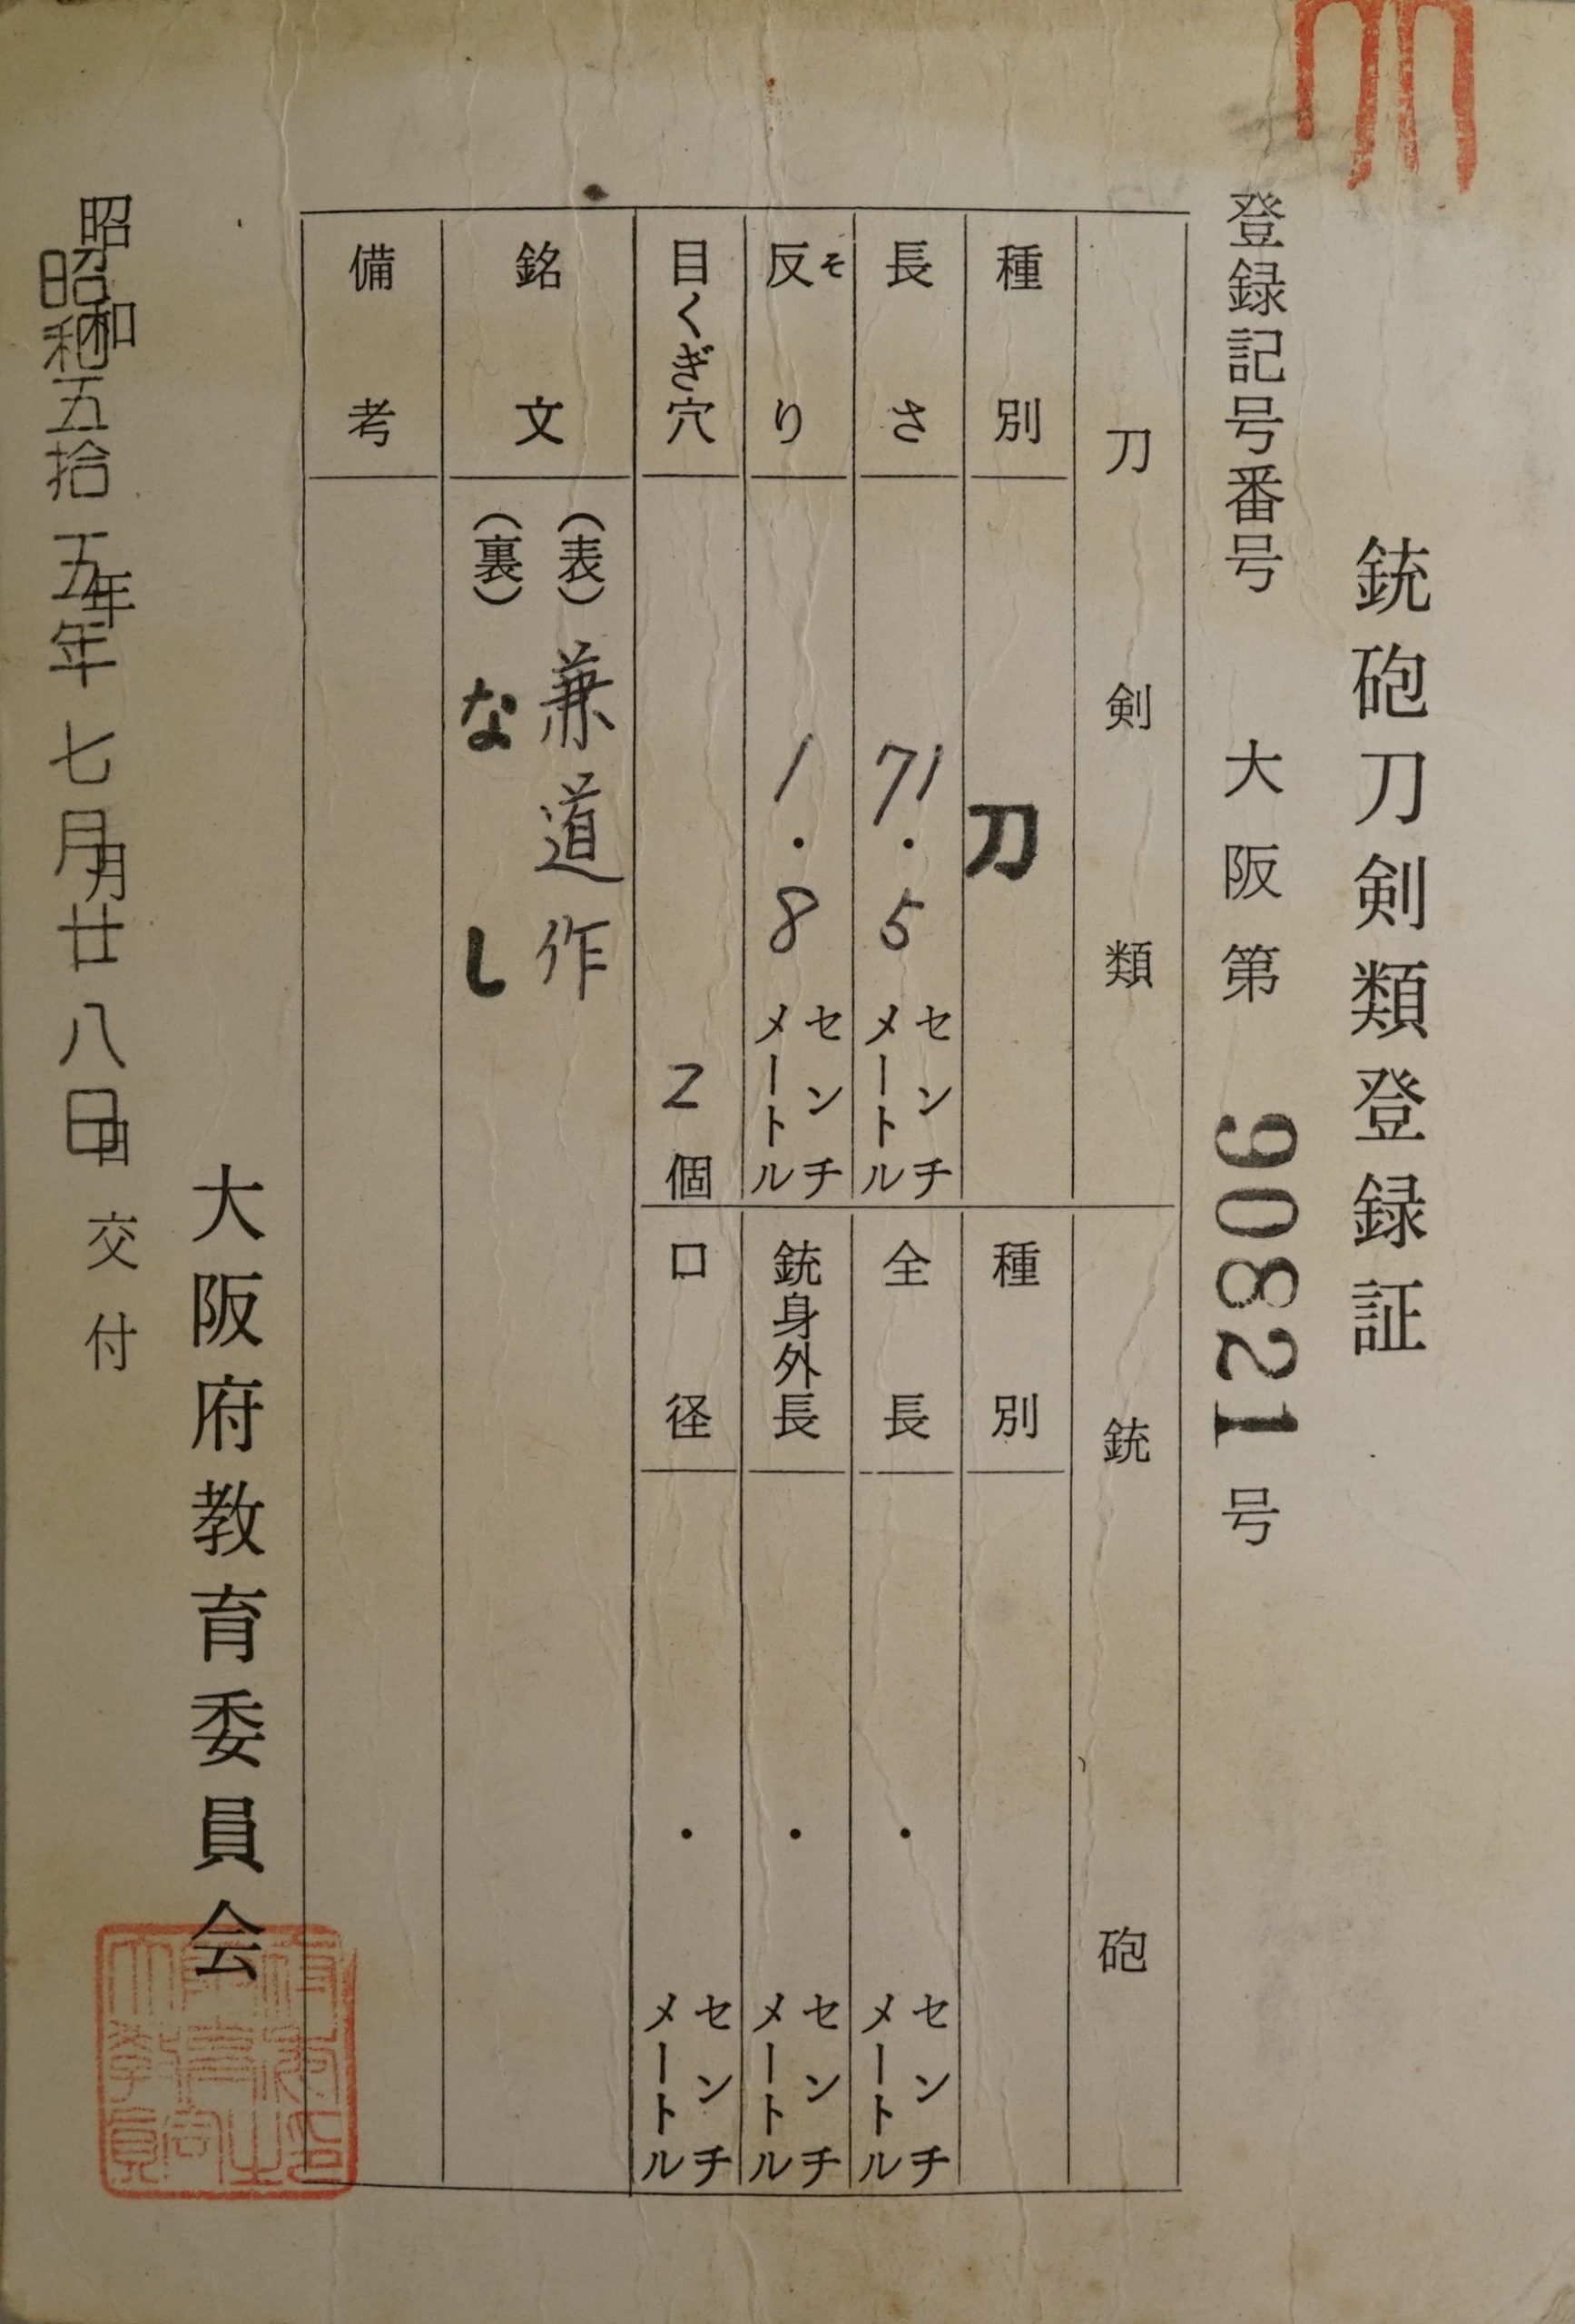 銃砲刀剣類登録証
登録記号番号 大阪第 90821 号
刀剣類
種別 刀
長さ 71.5 センチメートル
反り そ 1.8 センチメートル
目くぎ穴 2個
銃砲
種別
全長 ・ センチメートル
銃身外長 ・ センチメートル
口径 ・ センチメートル
銘文 (表) 兼道作
(裏) なし
備考
大阪府教育委員会
昭和 年 月 日 交付
昭和五拾五年七月廿八日